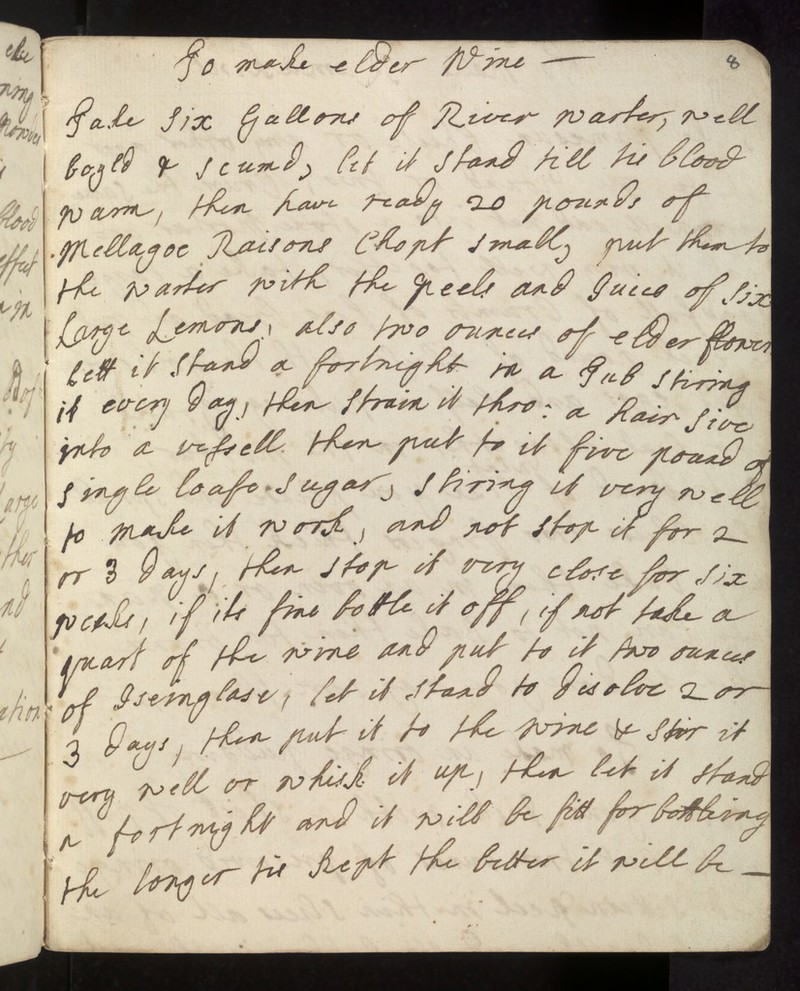 To make elder Wine —
8
Take Six Gallons of River warter, well
boyld & scumd, let it stand till tis blood
warm, then have ready 20 pounds of
Mellagoe Raisons Chopt small, put them to
the warter with the peels and Juice of Six
Large Lemons, also two ounces of elder flowers
Lett it Stand a fortnight in a Tub stiring
it every day, then strain it thro: a hair Sive
into a vessell then put to it five pound of
single loafe sugar, stiring it very well
to make it work, and not stop it for 2
or 3 days, then stop it very close for six
weeks, if its fine bottle it off, if not take a
quart of the wine and put to it two ounces
of Iseinglase, let it stand to disolve 2 or
3 days, then put it to the wine & stir it
very well or whisk it up, then let it stand
a fortnight and it will be fitt for bottleing
the longer tis kept the better it will be —